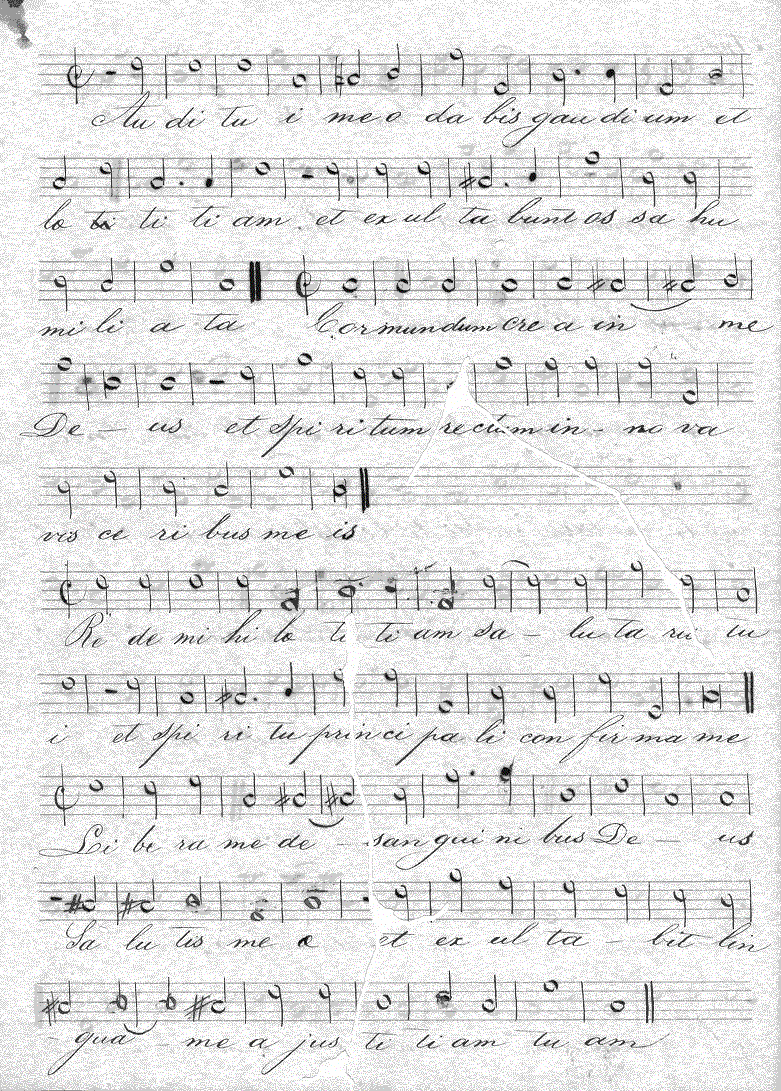 Au di tu i meo da bis gau di um et
lo ti ti ti am et ex ul ta bunt os sa hu
mi li a ta Cor mundum cre a in me
De - us et spi ri tum rectum in - no va
vis ce ri bus me is
Re de mi hi lo ti ti am sa - lu ta ri tu
i et spi ri tu prin ci pa li con fir ma me
Li be ra me de - san gui ni bus De - us
Sa lu tis me a et ex ul ta - bit lin
- gua - me a jus ti ti am tu am